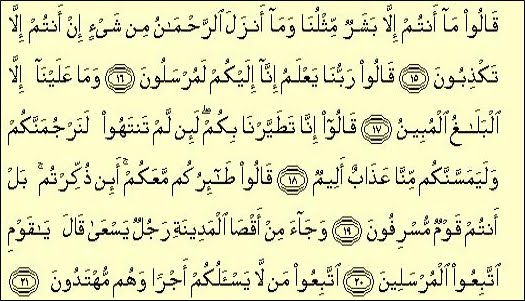 قَالُوا۟ مَآ أَنتُمْ إِلَّا بَشَرٌ مِّثْلُنَا وَمَآ أَنزَلَ ٱلرَّحْمَـٰنُ مِن شَىْءٍ إِنْ أَنتُمْ إِلَّا
تَكْذِبُونَ ١٥ قَالُوا۟ رَبُّنَا يَعْلَمُ إِنَّآ إِلَيْكُمْ لَمُرْسَلُونَ ١٦ وَمَا عَلَيْنَآ إِلَّا
ٱلْبَلَـٰغُ ٱلْمُبِينُ ١٧ قَالُوٓا۟ إِنَّا تَطَيَّرْنَا بِكُمْ ۖ لَئِن لَّمْ تَنتَهُوا۟ لَنَرْجُمَنَّكُمْ
وَلَيَمَسَّنَّكُم مِّنَّا عَذَابٌ أَلِيمٌ ١٨ قَالُوا۟ طَـٰٓئِرُكُم مَّعَكُمْ ۚ أَئِن ذُكِّرْتُم ۚ بَلْ
أَنتُمْ قَوْمٌ مُّسْرِفُونَ ١٩ وَجَآءَ مِنْ أَقْصَا ٱلْمَدِينَةِ رَجُلٌ يَسْعَىٰ قَالَ يَـٰقَوْمِ
ٱتَّبِعُوا۟ ٱلْمُرْسَلِينَ ٢٠ ٱتَّبِعُوا۟ مَن لَّا يَسْـَٔلُكُمْ أَجْرًا وَهُم مُّهْتَدُونَ ٢١